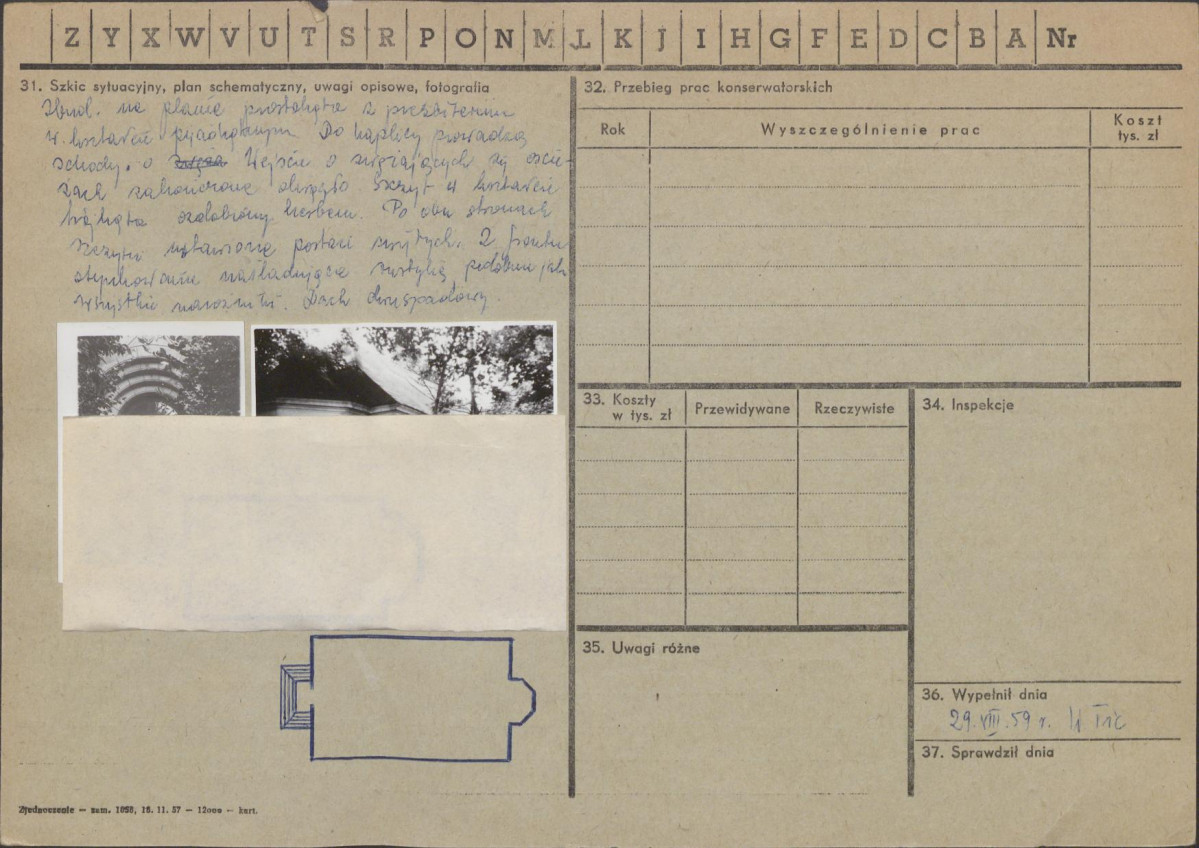 Z Y X W V U T S R P O N M L K J I H G F E D C B A Nr
31. Szkic sytuacyjny, plan schematyczny, uwagi opisowe, fotografia
Zbud. na planie prostokąta z prezbiterium
w kształcie pięciokątnym. Do kaplicy prowadzą
schody. o Wejście o zwężających się oście-
żach zakończone okrągło. Szczyt w kształcie
trójkąta ozdobiony herbem. Po obu stronach
szczytu ustawione postaci świętych. Z frontu
naśladujące rustykę, podobnie jak
wszystkie narożniki. Dach dwuspadowy.
32. Przebieg prac konserwatorskich
Rok
Wyszczególnienie prac
Koszt
tys. zł
33. Koszty
w tys. zł
Przewidywane
Rzeczywiste
34. Inspekcje
35. Uwagi różne
36. Wypełnił dnia
29.VIII.59 r.
37. Sprawdził dnia
Zjednoczenie — zam. 1050, 18. 11. 57 — 12000 — kart.